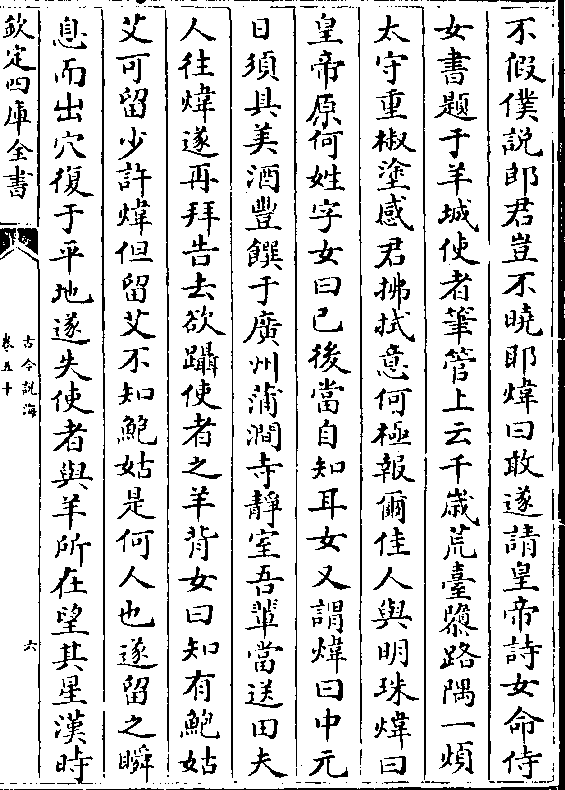 不假僕説郎君豈不曉耶煒曰敢遂請皇帝詩女命侍
女書題于羊城使者筆管上云千歳荒臺隳路隅一煩
太守重椒塗感君拂拭意何極報爾佳人與明珠煒曰
皇帝原何姓字女曰已後當自知耳女又謂煒曰中元
日須具美酒豐饌于廣州蒲澗寺靜室吾輩當送田夫
人往煒遂再拜告去欲躡使者之羊背女曰知有鮑姑
艾可留少許煒但留艾不知鮑姑是何人也遂留之瞬
息而出穴復于平地遂失使者與羊所在望其星漢時
欽定四庫全書
古今説海
卷五十
六